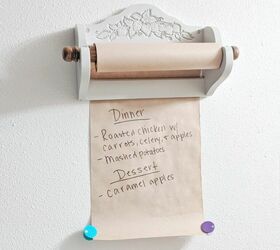 Dinner
- Roasted chicken w/
carrots, celery, + apples
- Mashed potatoes
Dessert
- Caramel apples